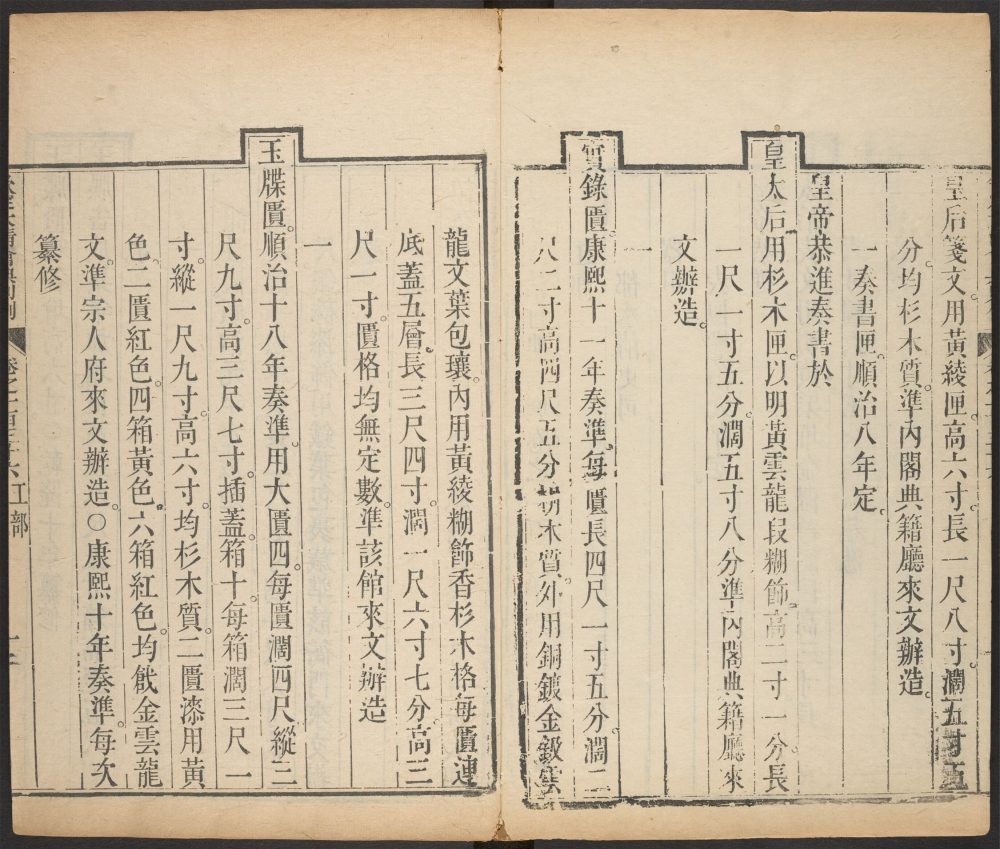 皇后箋文用黃綾匣高六寸長一尺八寸濶五寸五
分均杉木質。準內閣典籍廳來文辦造。
一奏書匣順治八年定。
皇帝恭進奏書於
皇太后用杉木匣。以明黃雲龍段糊飾。高二寸一分長
一尺一寸五分。濶五寸八分準內閣典籍廳來
文辦造。
一
實錄匱康熙十一年奏準每匱長四尺一寸五分濶二
尺二寸高四尺五分。木質。外用銅鍍金鈒雲
龍文葉包瓖內用黃綾糊飾香杉木格每匱連
底蓋五層。長三尺四寸濶一尺六寸七分。高三
尺一寸。匱格均無定數。準該館來文辦造
一
玉牒匱。順治十八年奏準。用大匱四。每匱濶四尺縱三
尺九寸。高三尺七寸。插蓋箱十。每箱濶三尺一
寸。縱一尺九寸。高六寸。均杉木質。二匱漆用黃
色。二匱紅色。四箱黃色。六箱紅色。均戧金雲龍
文。準宗人府來文辦造。○康熙十年奏準。每次
纂修
大清會典則例 卷之一百三十六工部